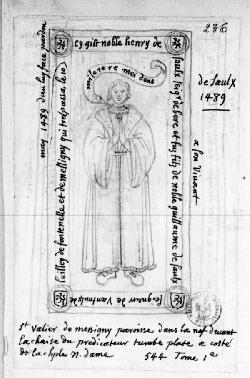 cy gist noble henry de
saulx seigr de bere et fu filz de noble guillaume de saulx
escuier de
tailley de fontenelle et de messigny qui trespassa le 10
may 1489 dieu luy face pardon
miserere mei deus
236
de Saulx
1489
a son Vivant
st Valier de messigny paroisse dans la nef devant
la chaise du predicateur tumbe plate a costé
de la chple n. dame 544 Tome 1e